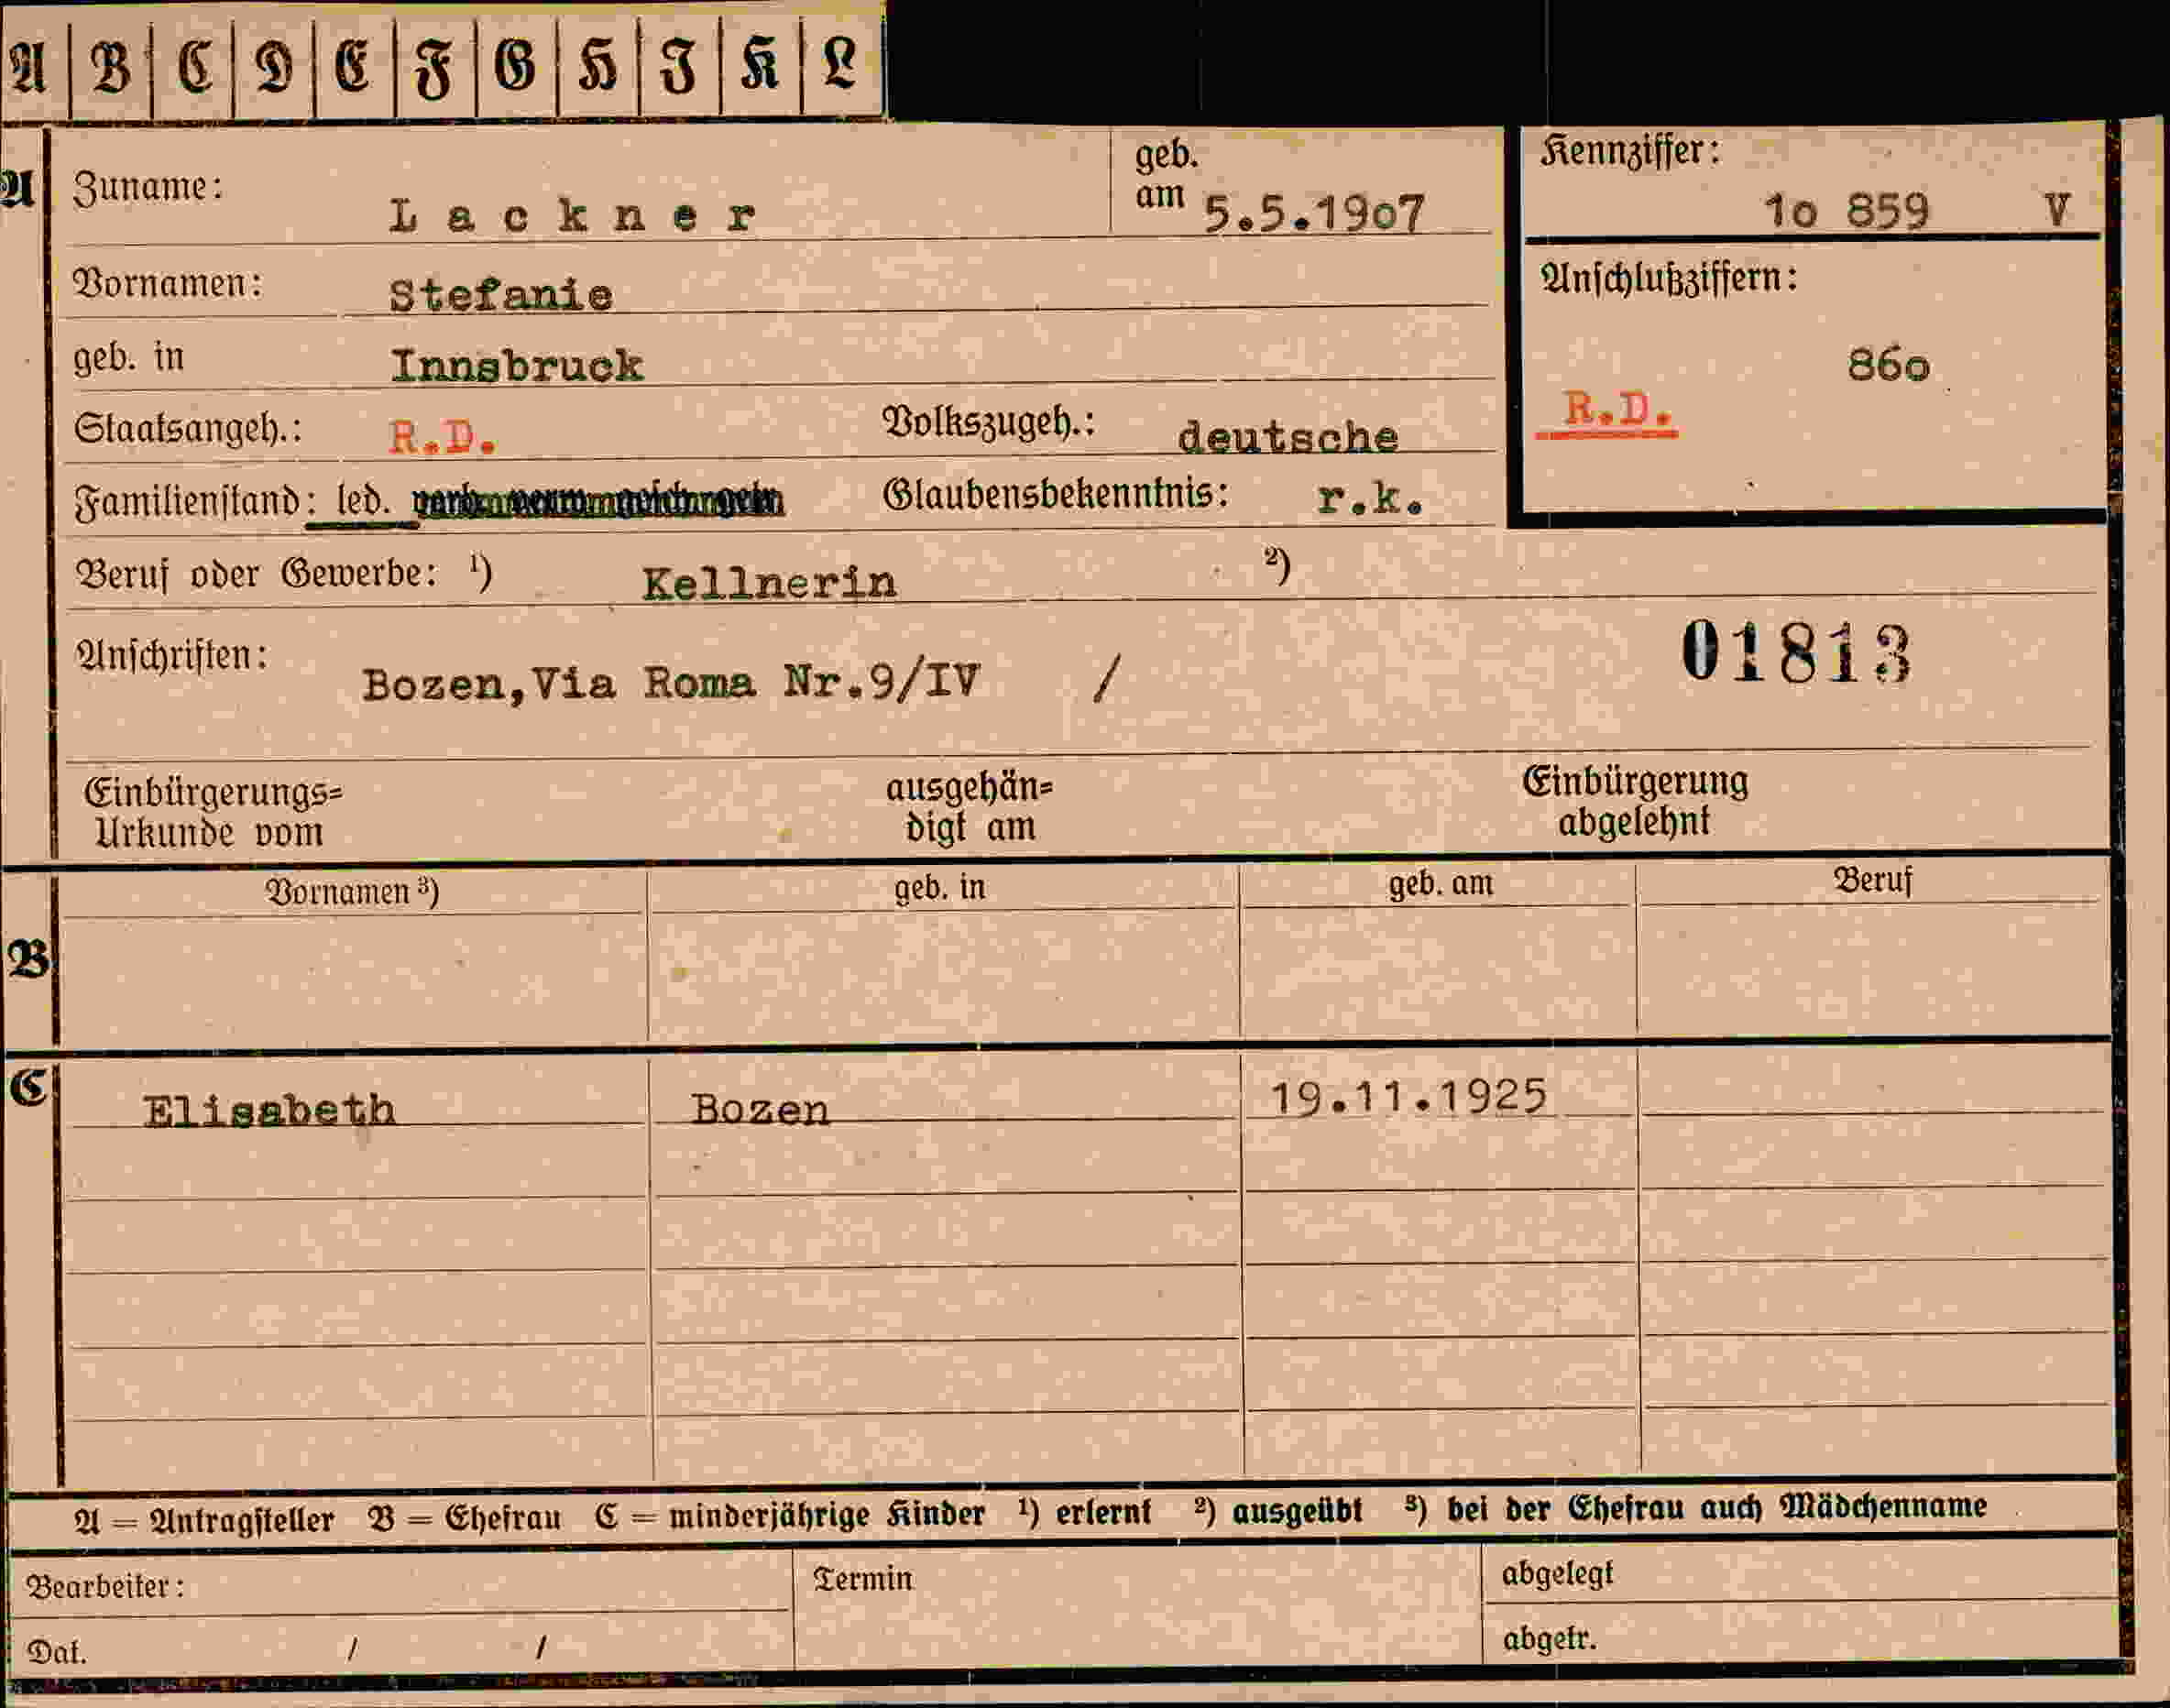 A B C D E F G H I K L
A Zuname: Lackner geb. am 5.5.19o7
Kennziffer: 1o 859 V
Vornamen: Stefanie
Anschlußziffern:
geb. in Innsbruck
86o
R.D.
Staatsangeh.: R.D. Volkszugeh.: deutsche
Familienstand: led. Glaubensbekenntnis: r.k.
Beruf oder Gewerbe: ¹) Kellnerin ²)
Anschriften: Bozen,Via Roma Nr.9/IV /
01813
Einbürgerungs= ausgehän= Einbürgerung
Urkunde vom digt am abgelehnt
Vornamen ³) geb. in geb. am Beruf
B
C Elisabeth Bozen 19.11.1925
A = Antragsteller B = Ehefrau C = minderjährige Kinder ¹) erlernt ²) ausgeübt ³) bei der Ehefrau auch Mädchenname
Bearbeiter: Termin abgelegt
Dat. / / abgetr.